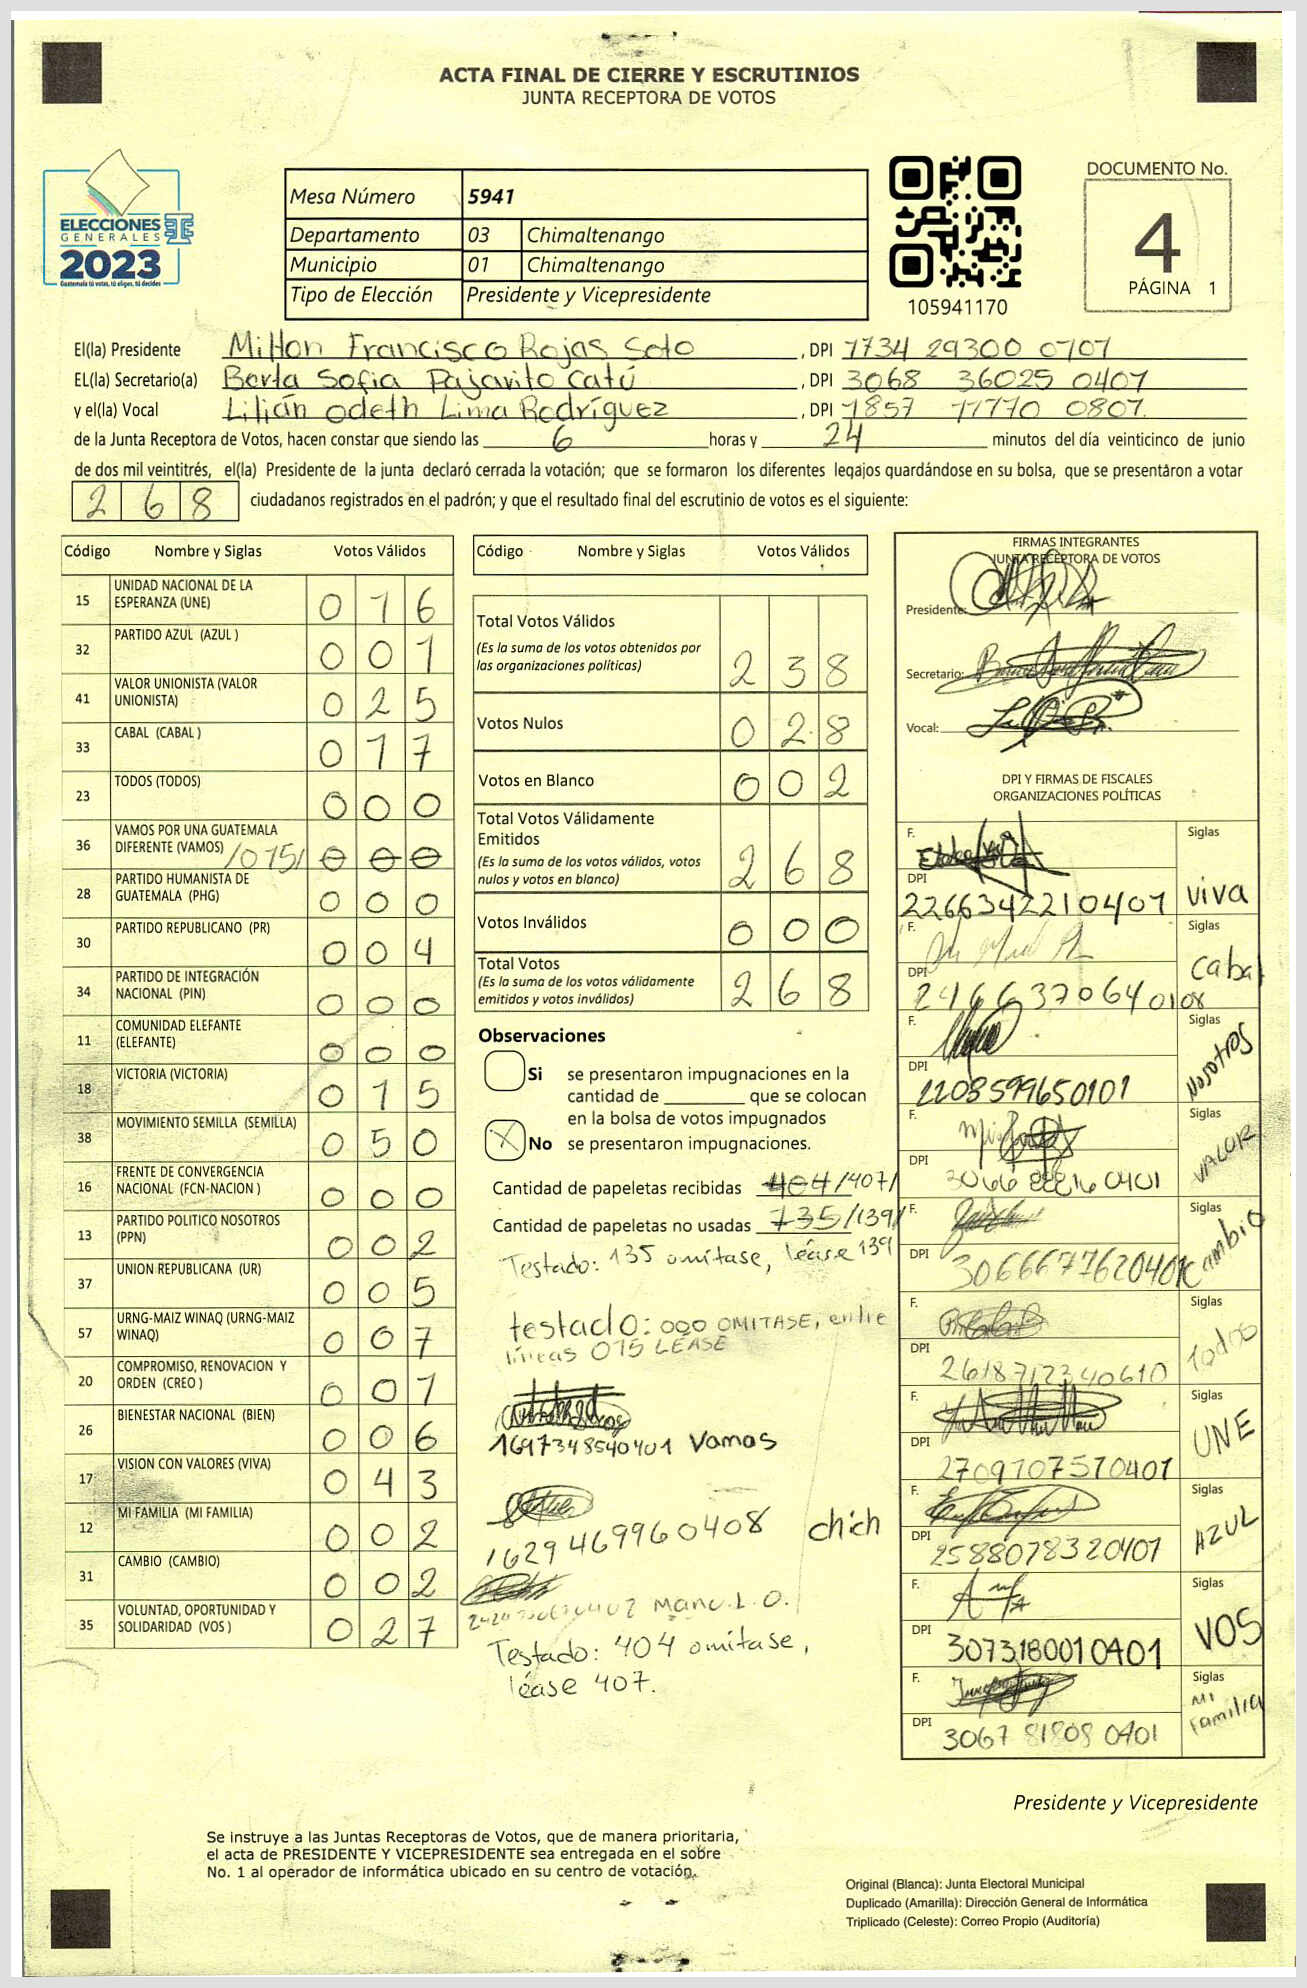 ACTA FINAL DE CIERRE Y ESCRUTINIOS
JUNTA RECEPTORA DE VOTOS
ELECCIONES
GENERALES
2023
Guatemala tú votas, tú eliges, tú decides
Mesa Número 5941
Departamento 03 Chimaltenango
Municipio 01 Chimaltenango
Tipo de Elección Presidente y Vicepresidente
105941170
DOCUMENTO No.
4
PÁGINA 1
El(la) Presidente Milton Francisco Rojas Soto , DPI 1734 29300 0707
EL(la) Secretario(a) Berta Sofia Pajarito Catú , DPI 3068 36025 0407
y el(la) Vocal Lilián Odeth Lima Rodríguez , DPI 1857 11770 0807
de la Junta Receptora de Votos, hacen constar que siendo las 6 horas y 24 minutos del día veinticinco de junio
de dos mil veintitrés, el(la) Presidente de la junta declaró cerrada la votación; que se formaron los diferentes legajos guardándose en su bolsa, que se presentáron a votar
268 ciudadanos registrados en el padrón; y que el resultado final del escrutinio de votos es el siguiente:
Código Nombre y Siglas Votos Válidos
15 UNIDAD NACIONAL DE LA ESPERANZA (UNE) 016
32 PARTIDO AZUL (AZUL ) 001
41 VALOR UNIONISTA (VALOR UNIONISTA) 025
33 CABAL (CABAL ) 017
23 TODOS (TODOS) 000
36 VAMOS POR UNA GUATEMALA DIFERENTE (VAMOS) /015/ 000
28 PARTIDO HUMANISTA DE GUATEMALA (PHG) 000
30 PARTIDO REPUBLICANO (PR) 004
34 PARTIDO DE INTEGRACIÓN NACIONAL (PIN) 000
11 COMUNIDAD ELEFANTE (ELEFANTE) 000
18 VICTORIA (VICTORIA) 015
38 MOVIMIENTO SEMILLA (SEMILLA) 050
16 FRENTE DE CONVERGENCIA NACIONAL (FCN-NACION ) 000
13 PARTIDO POLITICO NOSOTROS (PPN) 002
37 UNION REPUBLICANA (UR) 005
57 URNG-MAIZ WINAQ (URNG-MAIZ WINAQ) 007
20 COMPROMISO, RENOVACION Y ORDEN (CREO ) 001
26 BIENESTAR NACIONAL (BIEN) 006
17 VISION CON VALORES (VIVA) 043
12 MI FAMILIA (MI FAMILIA) 002
31 CAMBIO (CAMBIO) 002
35 VOLUNTAD, OPORTUNIDAD Y SOLIDARIDAD (VOS ) 027
Código Nombre y Siglas Votos Válidos
Total Votos Válidos 238
(Es la suma de los votos obtenidos por
las organizaciones políticas)
Votos Nulos 028
Votos en Blanco 002
Total Votos Válidamente
Emitidos 268
(Es la suma de los votos válidos, votos
nulos y votos en blanco)
Votos Inválidos 000
Total Votos 268
(Es la suma de los votos válidamente
emitidos y votos inválidos)
Observaciones
Si se presentaron impugnaciones en la
cantidad de ________ que se colocan
en la bolsa de votos impugnados
X No se presentaron impugnaciones.
Cantidad de papeletas recibidas 404/407/
Cantidad de papeletas no usadas 135/139/
Testado: 135 omitase, léase 139
testado: 000 OMITASE, entre
líneas 015 LÉASE
1697348540401 Vamos
1629469960408 chich
Testado: 404 omitase,
léase 407.
FIRMAS INTEGRANTES
JUNTA RECEPTORA DE VOTOS
Presidente:
Secretario:
Vocal:
DPI Y FIRMAS DE FISCALES
ORGANIZACIONES POLÍTICAS
F. Siglas
DPI 2266342210407 viva
F. Siglas
DPI 2466370640108 cabal
F. Siglas
DPI 2208599650101 Nosotros
F. Siglas
DPI VALOR
F. Siglas
DPI cambio
F. Siglas
DPI 2618712340610 Todos
F. Siglas
DPI 2709107570401 UNE
F. Siglas
DPI 2588078320401 AZUL
F. Siglas
DPI 3073180010401 VOS
F. Siglas
DPI 3067 81808 0401 Mi Familia
Presidente y Vicepresidente
Se instruye a las Juntas Receptoras de Votos, que de manera prioritaria,
el acta de PRESIDENTE Y VICEPRESIDENTE sea entregada en el sobre
No. 1 al operador de informática ubicado en su centro de votación.
Original (Blanca): Junta Electoral Municipal
Duplicado (Amarilla): Dirección General de Informática
Triplicado (Celeste): Correo Propio (Auditoría)